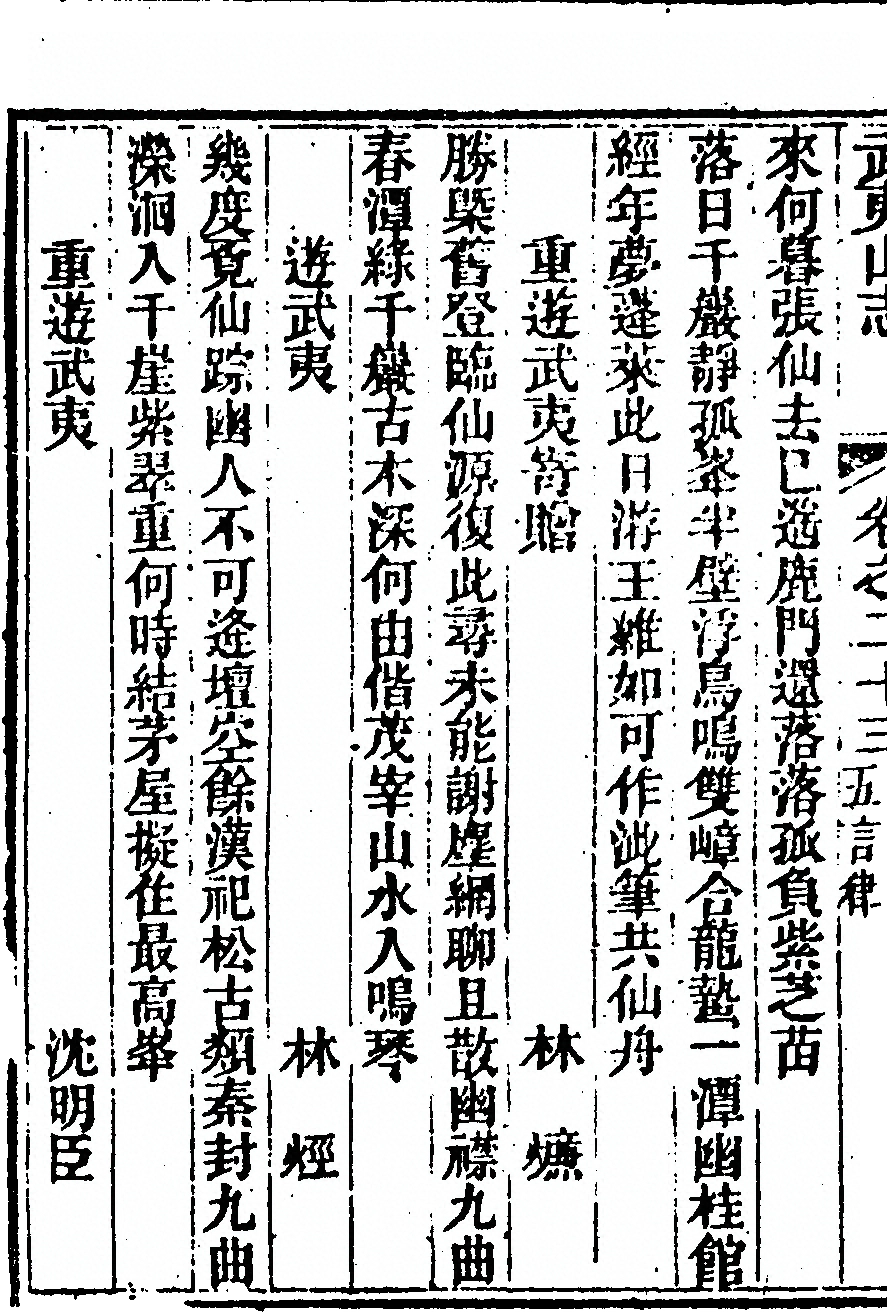 武夷山志 卷之二十三 五言律
來何暮張仙去已遙鹿門還落落孤負紫芝苗
落日千巖靜孤峯半壁浮鳥鳴雙嶂合龍蟄一潭幽桂館
經年夢蓬萊此日游王維如可作泚筆共仙舟
重遊武夷寄贈 林爊
勝槩舊登臨仙源復此尋未能謝塵網聊且散幽襟九曲
春潭綠千巖古木深何由偕茂宰山水入鳴琴
遊武夷 林烴
幾度覓仙踪幽人不可逢壇空餘漢祀松古類秦封九曲
濼洄入千崖紫翠重何時結茅屋擬住最高峯
重遊武夷 沈明臣